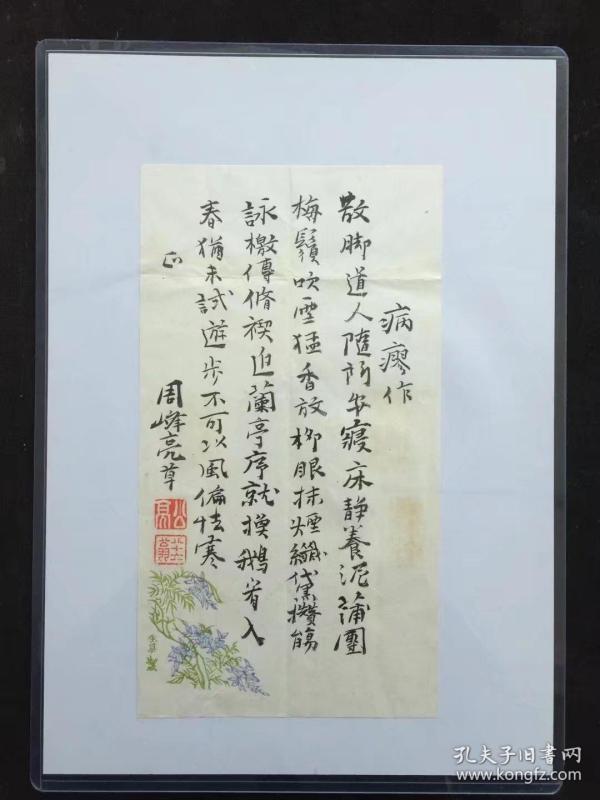 病瘳作
散脚道人隨所安寢床靜養泥蒲團
梅鬚吹雪猛香放柳眼抹煙纖黛攢觴
詠檄傳脩禊迫蘭亭序就換鵝看入
春猶未試遊步不可以風偏怯寒
正
周峰亮草
孔夫子旧书网
www.kongfz.com